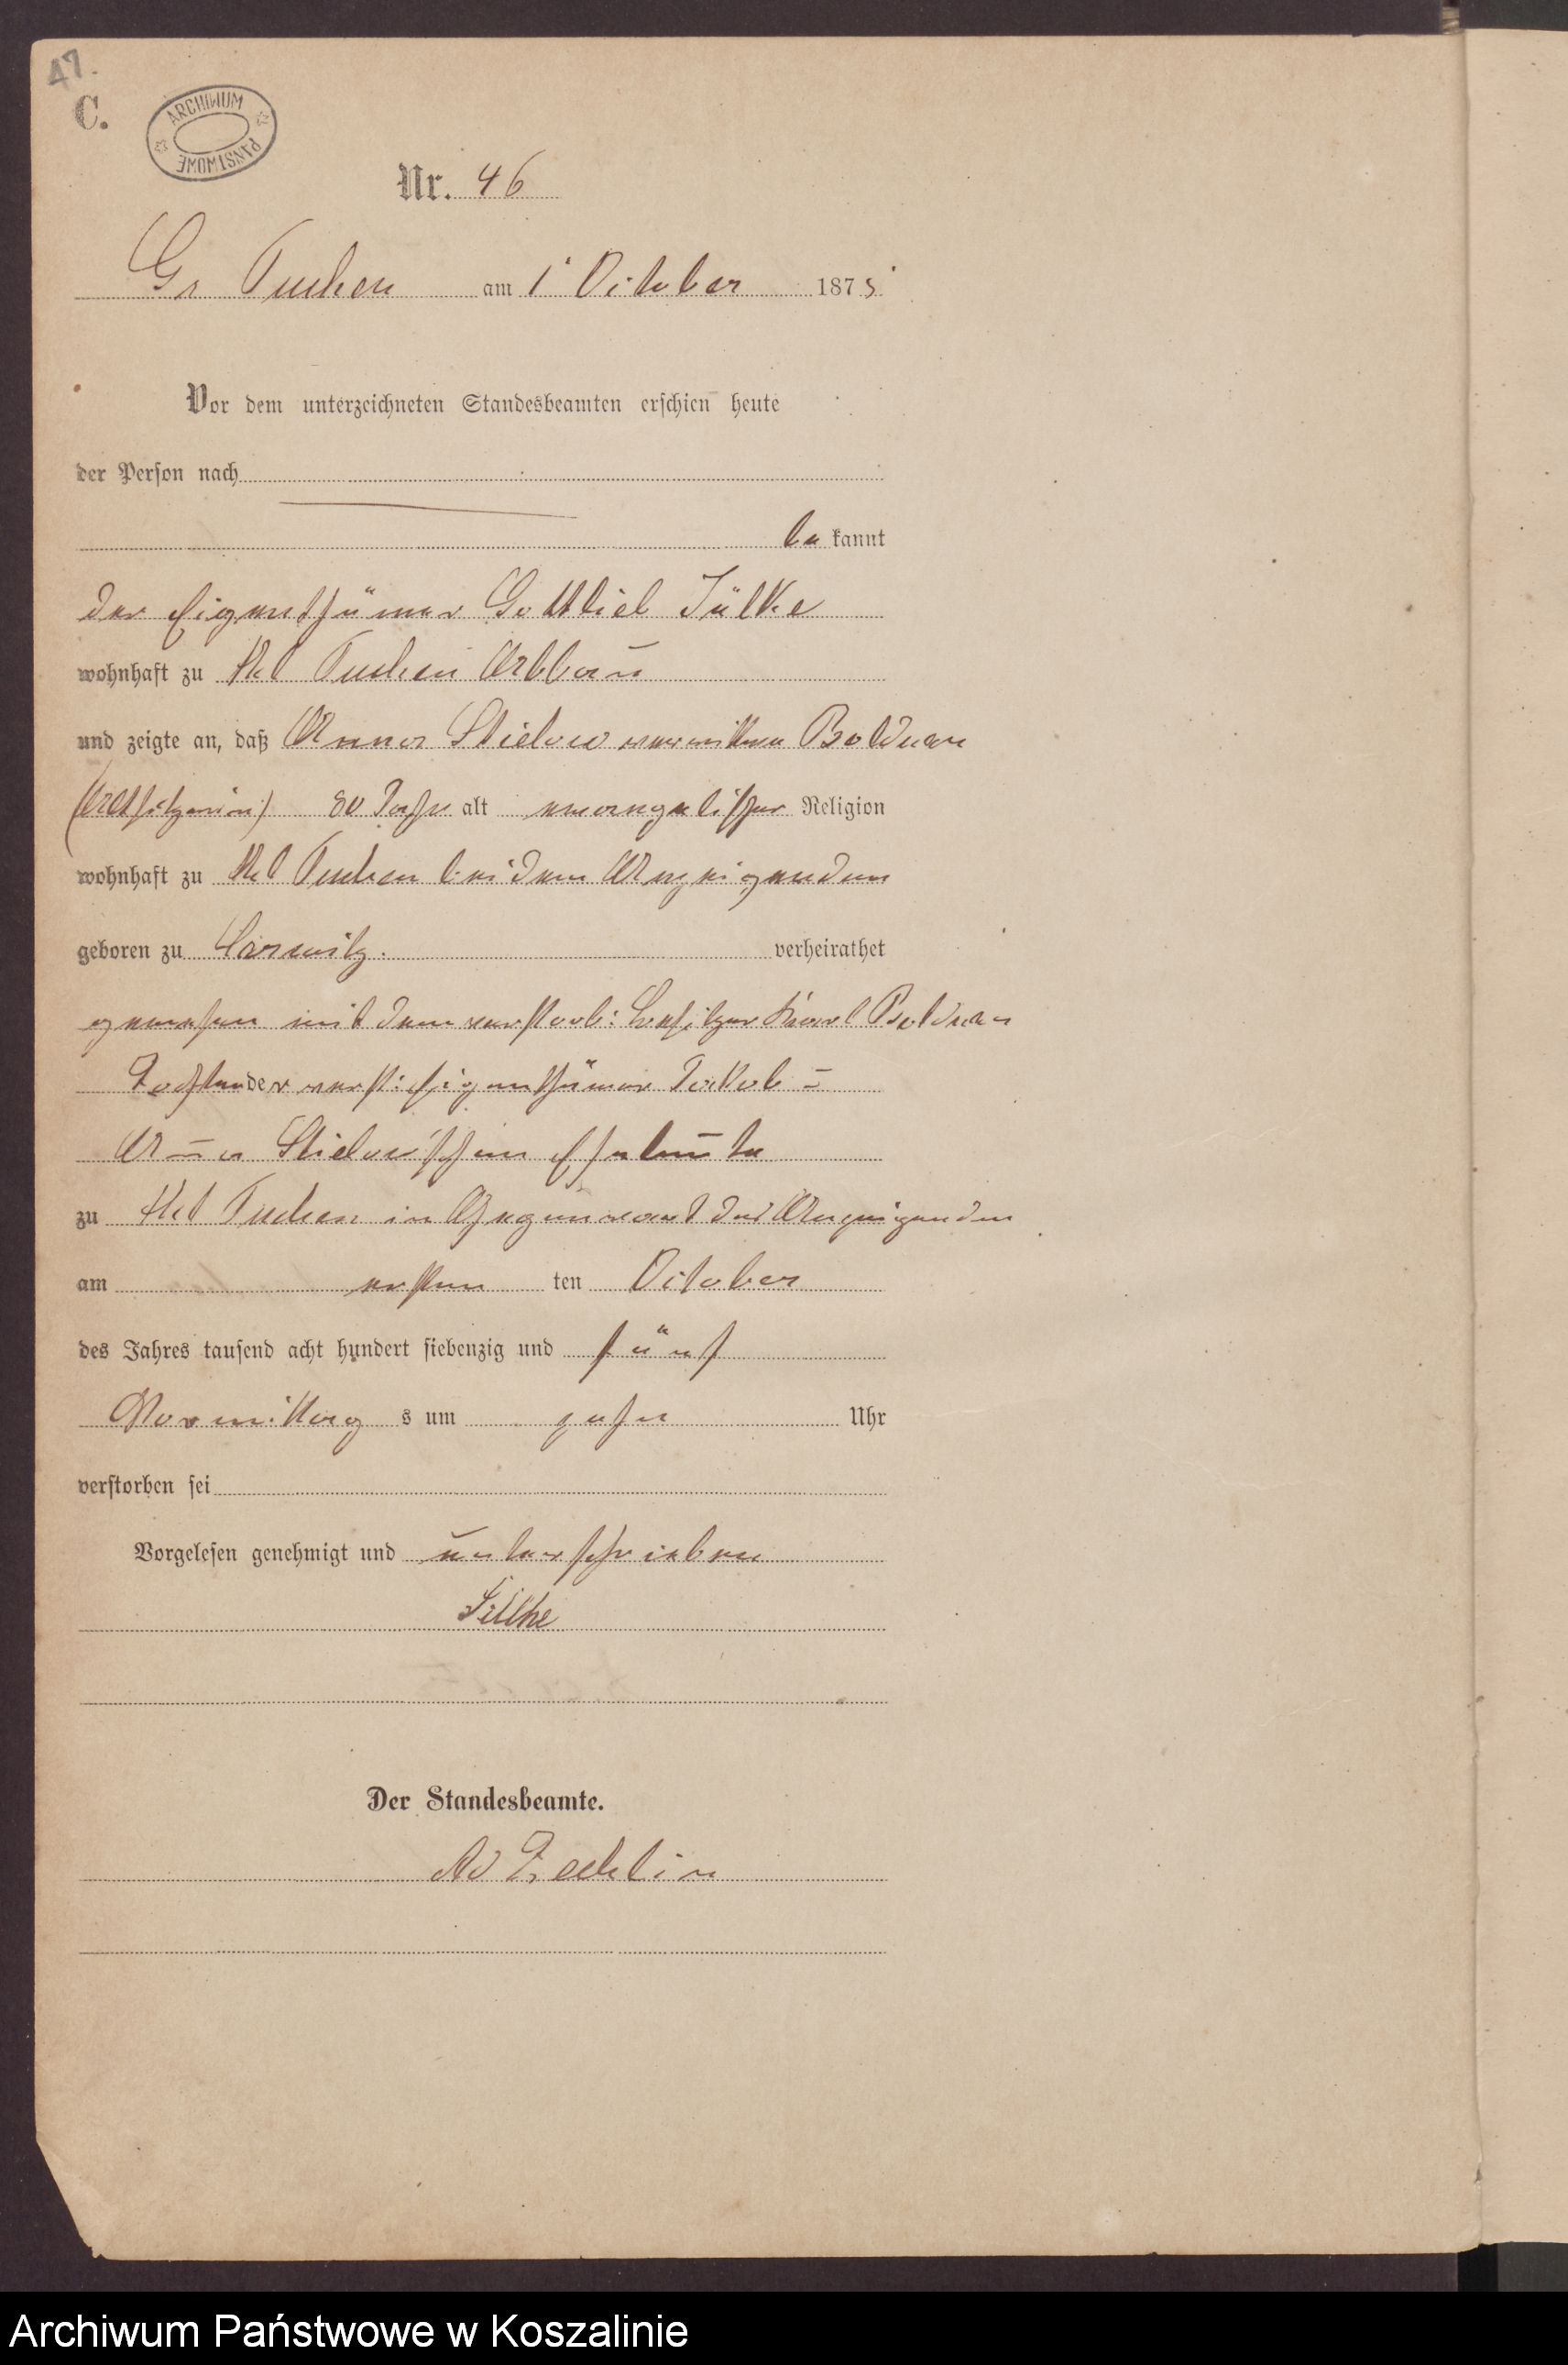 47.
C.
ARCHIWUM PAŃSTWOWE
Nr. 46
Gr Tuchen am 1 October 1875
Vor dem unterzeichneten Standesbeamten erschien heute
der Person nach
be kannt
der Eigenthümer Gottlieb Jülke
wohnhaft zu Kl Tuchen Abbau
und zeigte an, daß Anna Stielow verwittwe Bolduan
(Altsitzerin) 80 Jahr alt evangelischer Religion
wohnhaft zu Kl Tuchen bei dem Anzeigenden
geboren zu verheirathet
gewesen mit dem verstorb: Besitzer Karl Bolduan
Tochter der verst: Eigenthümer Jakob =
Anna Stielow'schen Eheleute
zu Kl Tuchen in Gegenwart des Anzeigenden
am ersten ten October
des Jahres tausend acht hundert siebenzig und fünf
Vormittag s um zehn Uhr
verstorben sei
Vorgelesen genehmigt und unterschrieben
Jülke
Der Standesbeamte.
Zechlin
Archiwum Państwowe w Koszalinie